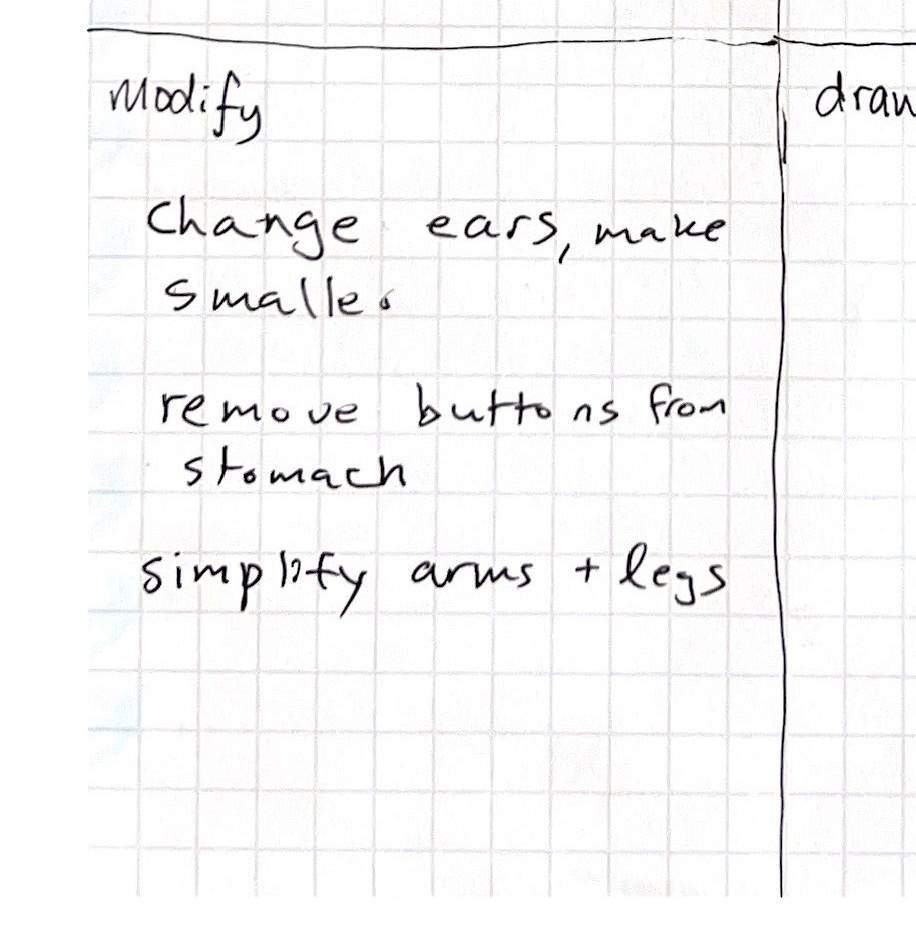 Modify
change ears, make
smaller
remove buttons from
stomach
simplify arms + legs
draw